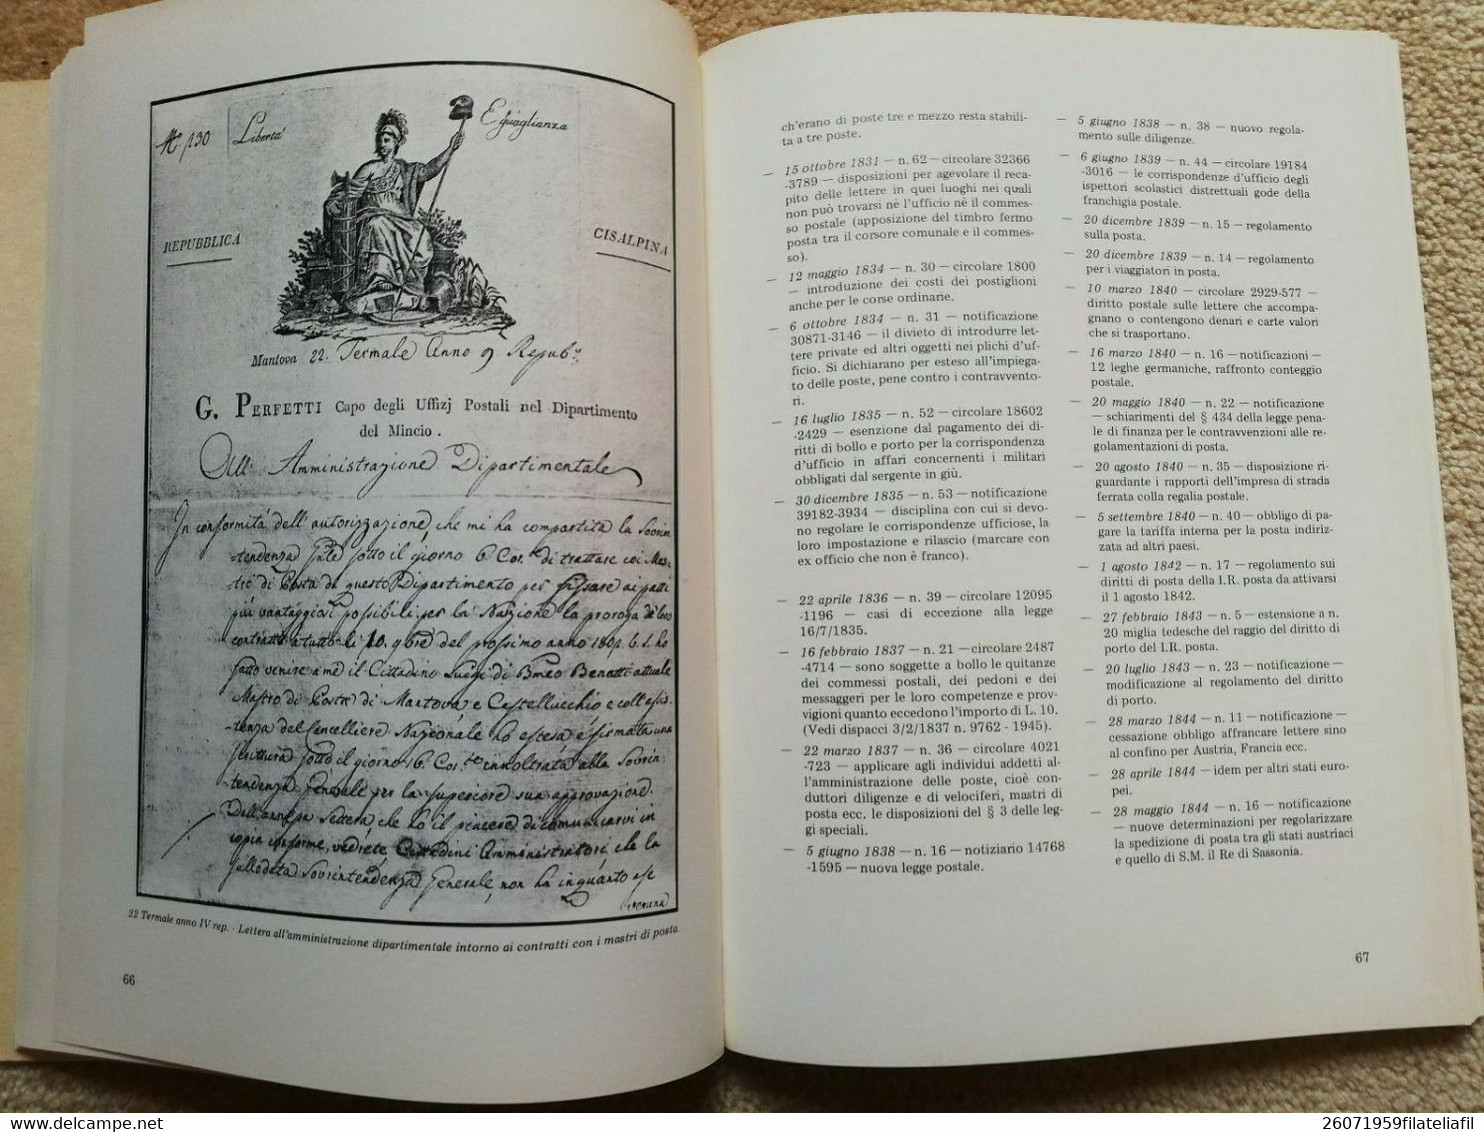 N.º 130
Libertà
Eguaglianza
REPUBBLICA
CISALPINA
Mantova 22. Termale Anno 9 Repub.º
G. PERFETTI Capo degli Uffizj Postali nel Dipartimento
del Mincio.
All' Amministrazione Dipartimentale
In conformità dell' autorizzazione, che mi ha compartita la Sovrin-
tendenza sotto il giorno 6. di trattare coi Mas-
tri di Posta di questo Dipartimento per fissare ai patti
più vantaggiosi possibili per la Nazione la proroga de' loro
contratti a tutto li 10. 9bre del prossimo anno 1801.
fatto venire a me il Cittadino Luigi di Benetti attuale
Mastro di Posta di Mantova e Castellucchio e coll'asis-
tenza del Cancelliere Nazionale ho estesa e firmata una
scrittura sotto il giorno 16. innoltrata alla Sovrin-
tendenza Generale per la superiore sua approvazione.
Dall'annessa lettera che ho il piacere di comunicarvi in
copia conforme, vedrete Cittadini Amministratori che la
sullodata Sovrintendenza Generale, non ha in quanto a se
veruna
22 Termale anno IV rep. - Lettera all'amministrazione dipartimentale intorno ai contratti con i mastri di posta.
66
ch'erano di poste tre e mezzo resta stabili-
ta a tre poste.
— 15 ottobre 1831 — n. 62 — circolare 32366
-3789 — disposizioni per agevolare il reca-
pito delle lettere in quei luoghi nei quali
non può trovarsi nè l'ufficio nè il commes-
so postale (apposizione del timbro fermo
posta tra il corsore comunale e il commes-
so).
— 12 maggio 1834 — n. 30 — circolare 1800
— introduzione dei costi dei postiglioni
anche per le corse ordinarie.
— 6 ottobre 1834 — n. 31 — notificazione
30871-3146 — il divieto di introdurre let-
tere private ed altri oggetti nei plichi d'uf-
ficio. Si dichiarano per esteso all'impiega-
to delle poste, pene contro i contravvento-
ri.
— 16 luglio 1835 — n. 52 — circolare 18602
-2429 — esenzione dal pagamento dei di-
ritti di bollo e porto per la corrispondenza
d'ufficio in affari concernenti i militari
obbligati dal sergente in giù.
— 30 dicembre 1835 — n. 53 — notificazione
39182-3934 — disciplina con cui si devo-
no regolare le corrispondenze ufficiose, la
loro impostazione e rilascio (marcare con
ex officio che non è franco).
— 22 aprile 1836 — n. 39 — circolare 12095
-1196 — casi di eccezione alla legge
16/7/1835.
— 16 febbraio 1837 — n. 21 — circolare 2487
-4714 — sono soggette a bollo le quitanze
dei commessi postali, dei pedoni e dei
messaggeri per le loro competenze e prov-
vigioni quanto eccedono l'importo di L. 10.
(Vedi dispacci 3/2/1837 n. 9762 - 1945).
— 22 marzo 1837 — n. 36 — circolare 4021
-723 — applicare agli individui addetti al-
l'amministrazione delle poste, cioè con-
duttori diligenze e di velociferi, mastri di
posta ecc. le disposizioni del § 3 delle leg-
gi speciali.
— 5 giugno 1838 — n. 16 — notiziario 14768
-1595 — nuova legge postale.
— 5 giugno 1838 — n. 38 — nuovo regola-
mento sulle diligenze.
— 6 giugno 1839 — n. 44 — circolare 19184
-3016 — le corrispondenze d'ufficio degli
ispettori scolastici distrettuali gode della
franchigia postale.
— 20 dicembre 1839 — n. 15 — regolamento
sulla posta.
— 20 dicembre 1839 — n. 14 — regolamento
per i viaggiatori in posta.
— 10 marzo 1840 — circolare 2929-577 —
diritto postale sulle lettere che accompa-
gnano o contengono denari e carte valori
che si trasportano.
— 16 marzo 1840 — n. 16 — notificazioni —
12 leghe germaniche, raffronto conteggio
postale.
— 20 maggio 1840 — n. 22 — notificazione
— schiarimenti del § 434 della legge pena-
le di finanza per le contravvenzioni alle re-
golamentazioni di posta.
— 20 agosto 1840 — n. 35 — disposizione ri-
guardante i rapporti dell'impresa di strada
ferrata colla regalia postale.
— 5 settembre 1840 — n. 40 — obbligo di pa-
gare la tariffa interna per la posta indiriz-
zata ad altri paesi.
— 1 agosto 1842 — n. 17 — regolamento sui
diritti di posta della I.R. posta da attivarsi
il 1 agosto 1842.
— 27 febbraio 1843 — n. 5 — estensione a n.
20 miglia tedesche del raggio del diritto di
porto del I.R. posta.
— 20 luglio 1843 — n. 23 — notificazione —
modificazione al regolamento del diritto
di porto.
— 28 marzo 1844 — n. 11 — notificazione —
cessazione obbligo affrancare lettere sino
al confino per Austria, Francia ecc.
— 28 aprile 1844 — idem per altri stati euro-
pei.
— 28 maggio 1844 — n. 16 — notificazione
— nuove determinazioni per regolarizzare
la spedizione di posta tra gli stati austriaci
e quello di S.M. il Re di Sassonia.
67
26071959filateliafil